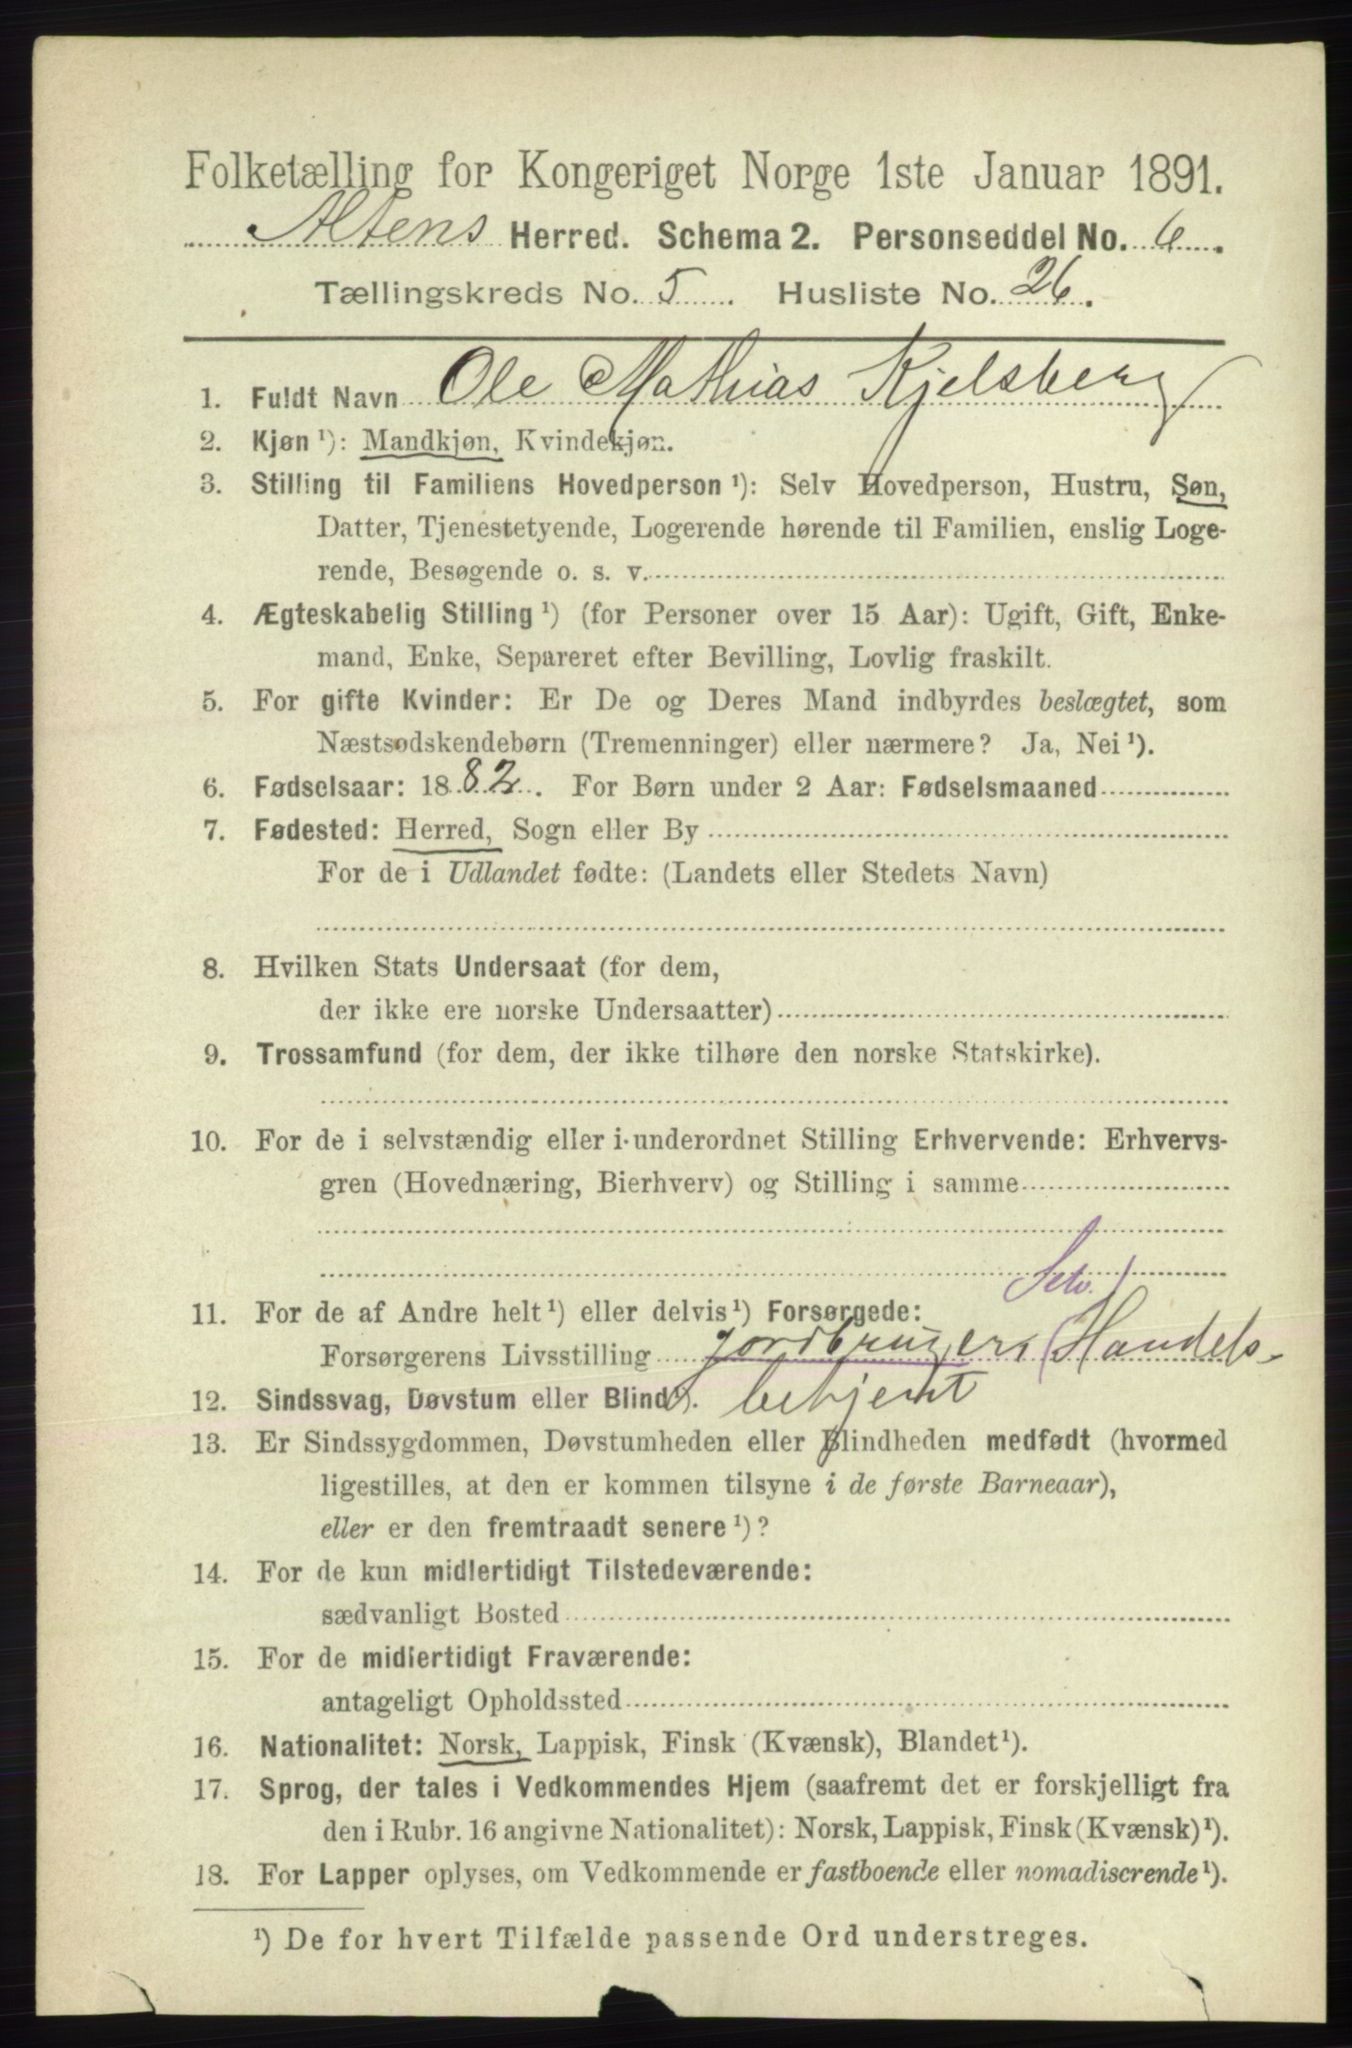 Folketælling for Kongeriget Norge 1ste Januar 1891.
Altens Herred. Schema 2. Personseddel No. 6.
Tællingskreds No. 5. Husliste No. 26.
1. Fuldt Navn Ole Mathias Kjelsberg
2. Kjøn ¹): Mandkjøn, Kvindekjøn.
3. Stilling til Familiens Hovedperson ¹): Selv Hovedperson, Hustru, Søn,
Datter, Tjenestetyende, Logerende hørende til Familien, enslig Loge-
rende, Besøgende o. s. v.
4. Ægteskabelig Stilling ¹) (for Personer over 15 Aar): Ugift, Gift, Enke-
mand, Enke, Separeret efter Bevilling, Lovlig fraskilt.
5. For gifte Kvinder: Er De og Deres Mand indbyrdes beslægtet, som
Næstsødskendebørn (Tremenninger) eller nærmere? Ja, Nei ¹).
6. Fødselsaar: 1882. For Børn under 2 Aar: Fødselsmaaned
7. Fødested: Herred, Sogn eller By
For de i Udlandet fødte: (Landets eller Stedets Navn)
8. Hvilken Stats Undersaat (for dem,
der ikke ere norske Undersaatter)
9. Trossamfund (for dem, der ikke tilhøre den norske Statskirke).
10. For de i selvstændig eller i underordnet Stilling Erhvervende: Erhvervs-
gren (Hovednæring, Bierhverv) og Stilling i samme
Selv.
11. For de af Andre helt ¹) eller delvis ¹) Forsørgede:
Forsørgerens Livsstilling Jordbruger, (Handels-
12. Sindssvag, Døvstum eller Blind ¹). betjent
13. Er Sindssygdommen, Døvstumheden eller Blindheden medfødt (hvormed
ligestilles, at den er kommen tilsyne i de første Barneaar),
eller er den fremtraadt senere ¹)?
14. For de kun midlertidigt Tilstedeværende:
sædvanligt Bosted
15. For de midlertidigt Fraværende:
antageligt Opholdssted
16. Nationalitet: Norsk, Lappisk, Finsk (Kvænsk), Blandet ¹).
17. Sprog, der tales i Vedkommendes Hjem (saafremt det er forskjelligt fra
den i Rubr. 16 angivne Nationalitet): Norsk, Lappisk, Finsk (Kvænsk) ¹).
18. For Lapper oplyses, om Vedkommende er fastboende eller nomadiserende ¹).
¹) De for hvert Tilfælde passende Ord understreges.